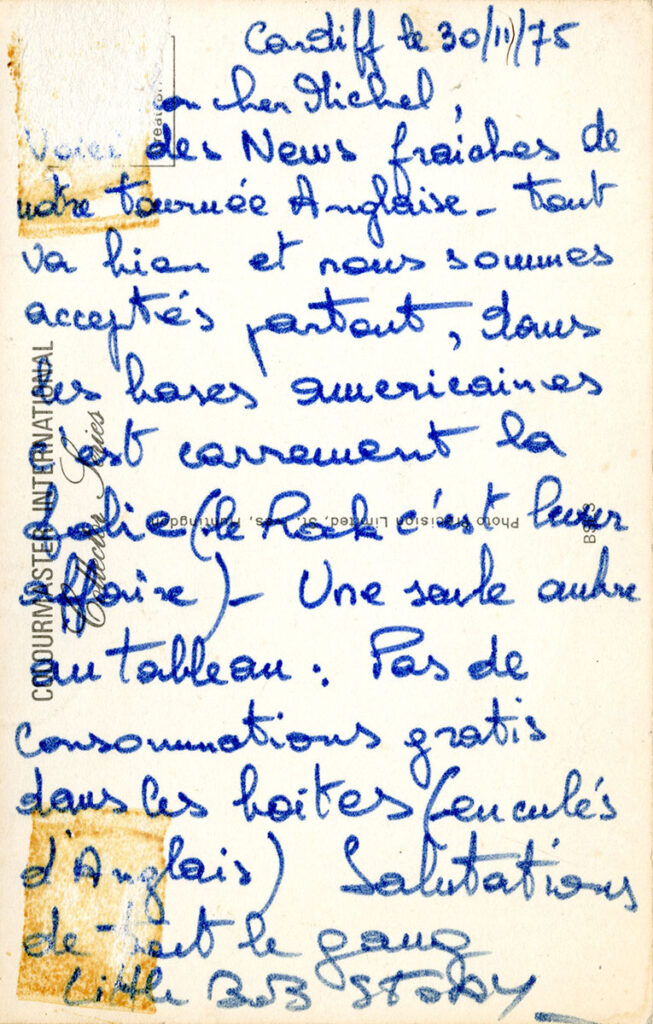 Cardiff le 30/11/75
on cher Michel,
Voici des News fraiches de
notre tournée Anglaise - tout
va bien et nous sommes
acceptés partout, dans
les bases americaines
c'est carrement la
folie (le Rock c'est leur
affaire) - Une seule ombre
au tableau : Pas de
consommations gratis
dans les boites (enculés
d'Anglais) Salutations
de tout le gang
Little BOB STORY
COLOURMASTER INTERNATIONAL
Collector Series
Photo Precision Limited, St. Ives, Huntingdon